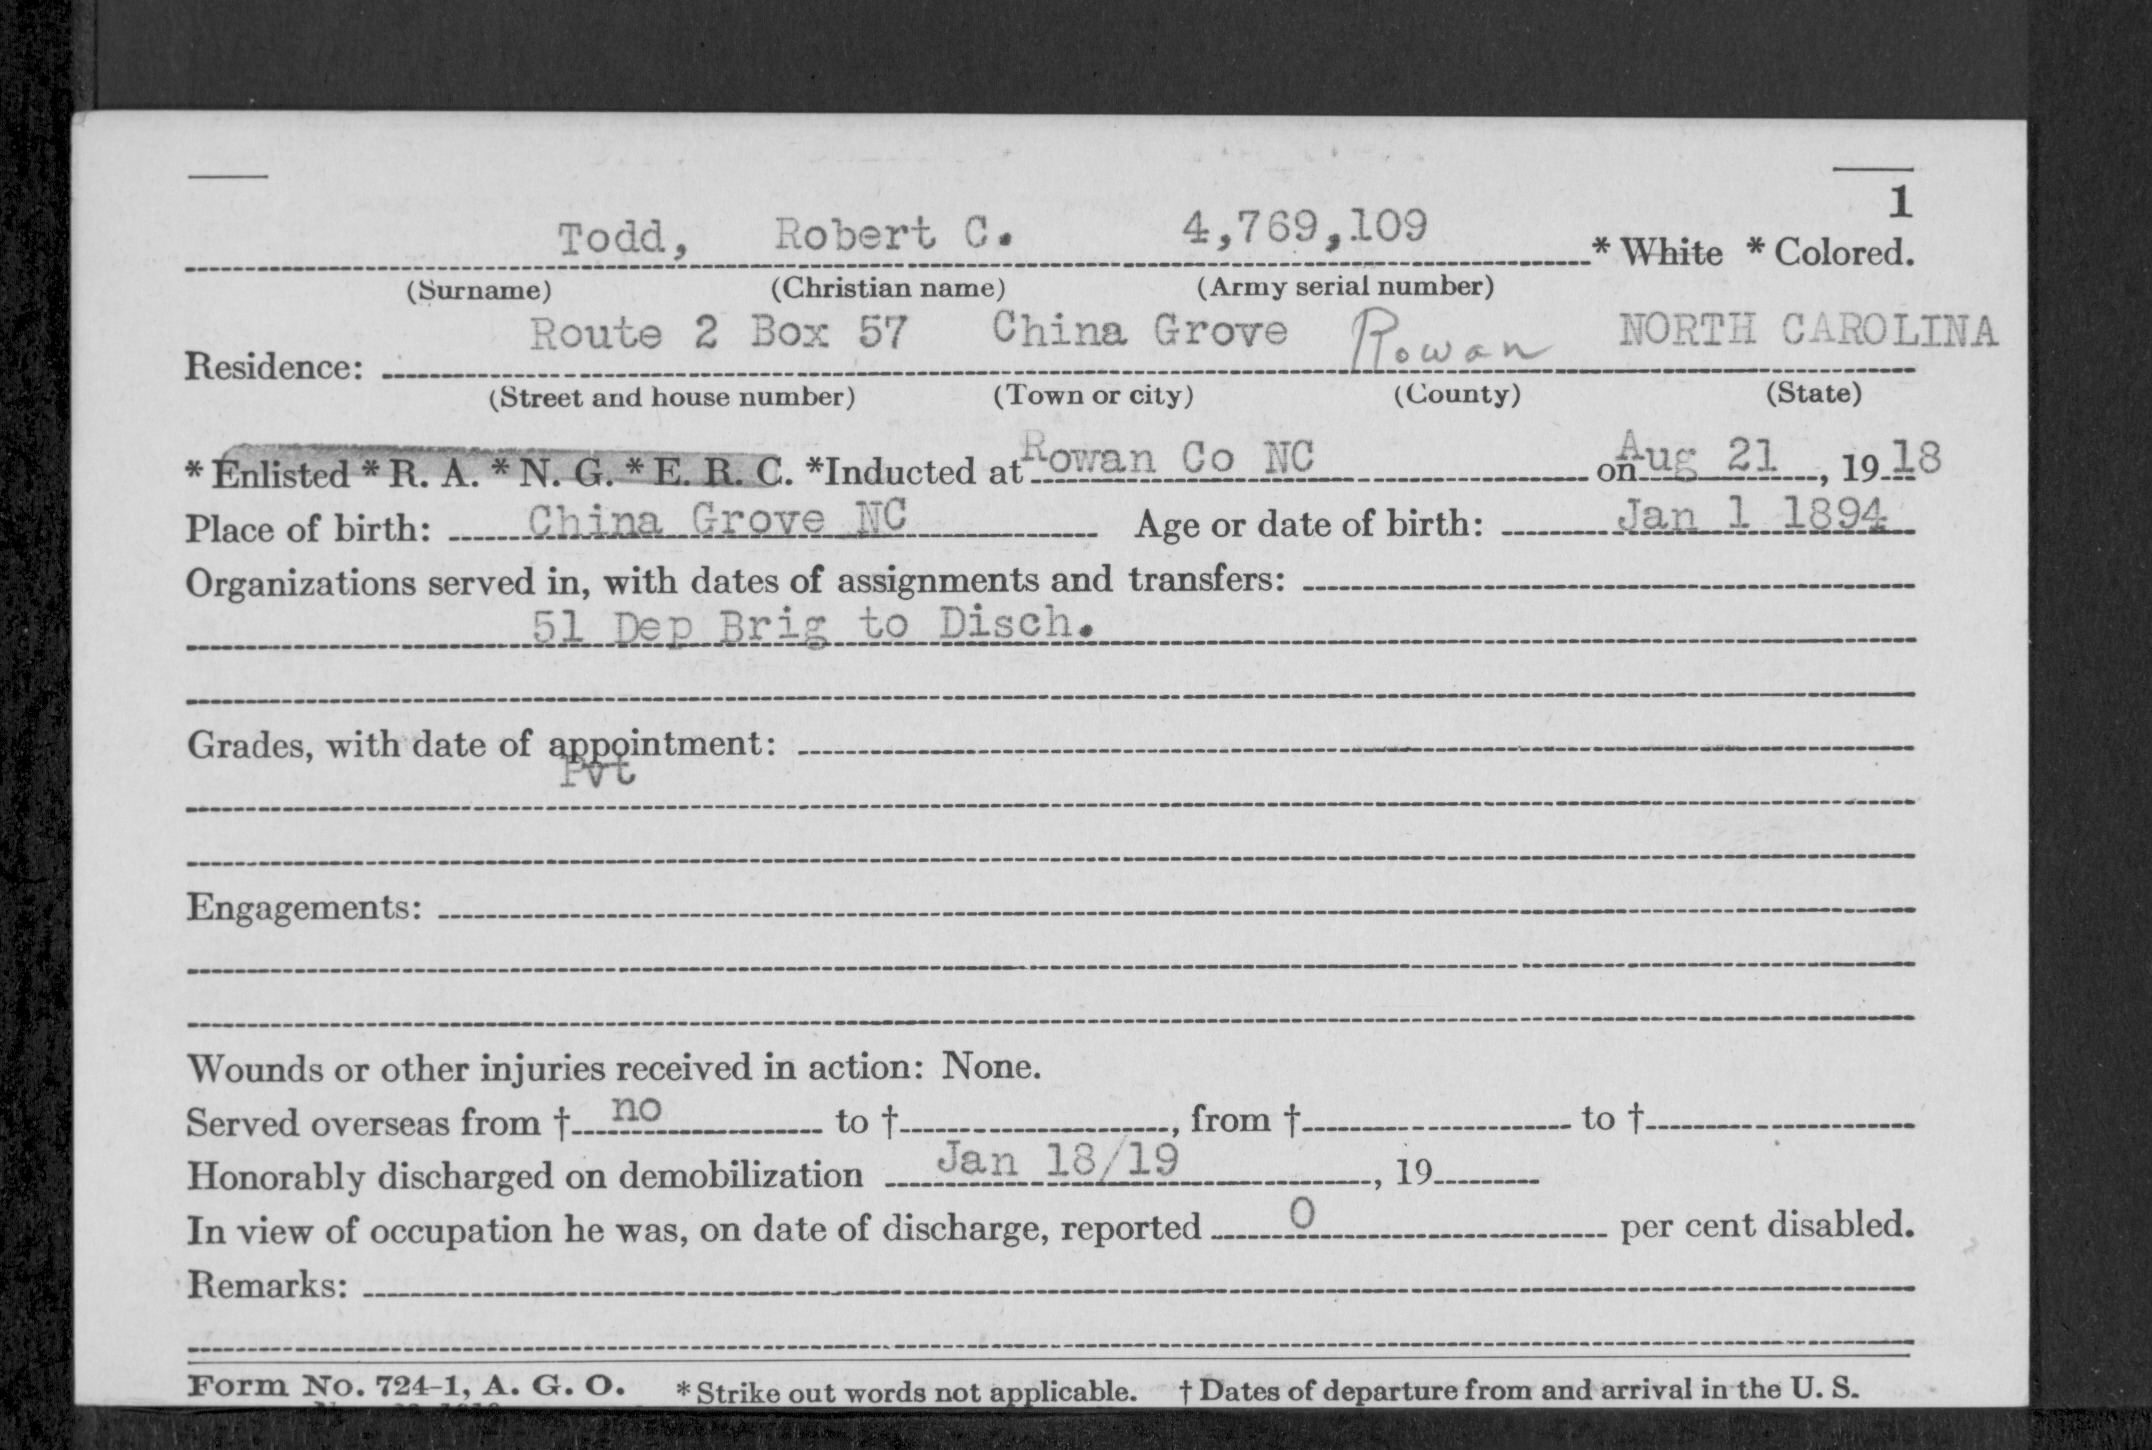 1
Todd, Robert C. 4,769,109 * White * Colored.
(Surname) (Christian name) (Army serial number)
Route 2 Box 57 China Grove Rowan NORTH CAROLINA
Residence:
(Street and house number) (Town or city) (County) (State)
* Enlisted * R. A. * N. G. * E. R. C. *Inducted at Rowan Co NC on Aug 21, 1918
Place of birth: China Grove NC Age or date of birth: Jan 1 1894
Organizations served in, with dates of assignments and transfers:
51 Dep Brig to Disch.
Grades, with date of appointment:
Pvt
Engagements:
Wounds or other injuries received in action: None.
Served overseas from † no to †, from † to †
Honorably discharged on demobilization Jan 18/19, 19
In view of occupation he was, on date of discharge, reported 0 per cent disabled.
Remarks:
Form No. 724-1, A. G. O. * Strike out words not applicable. † Dates of departure from and arrival in the U. S.